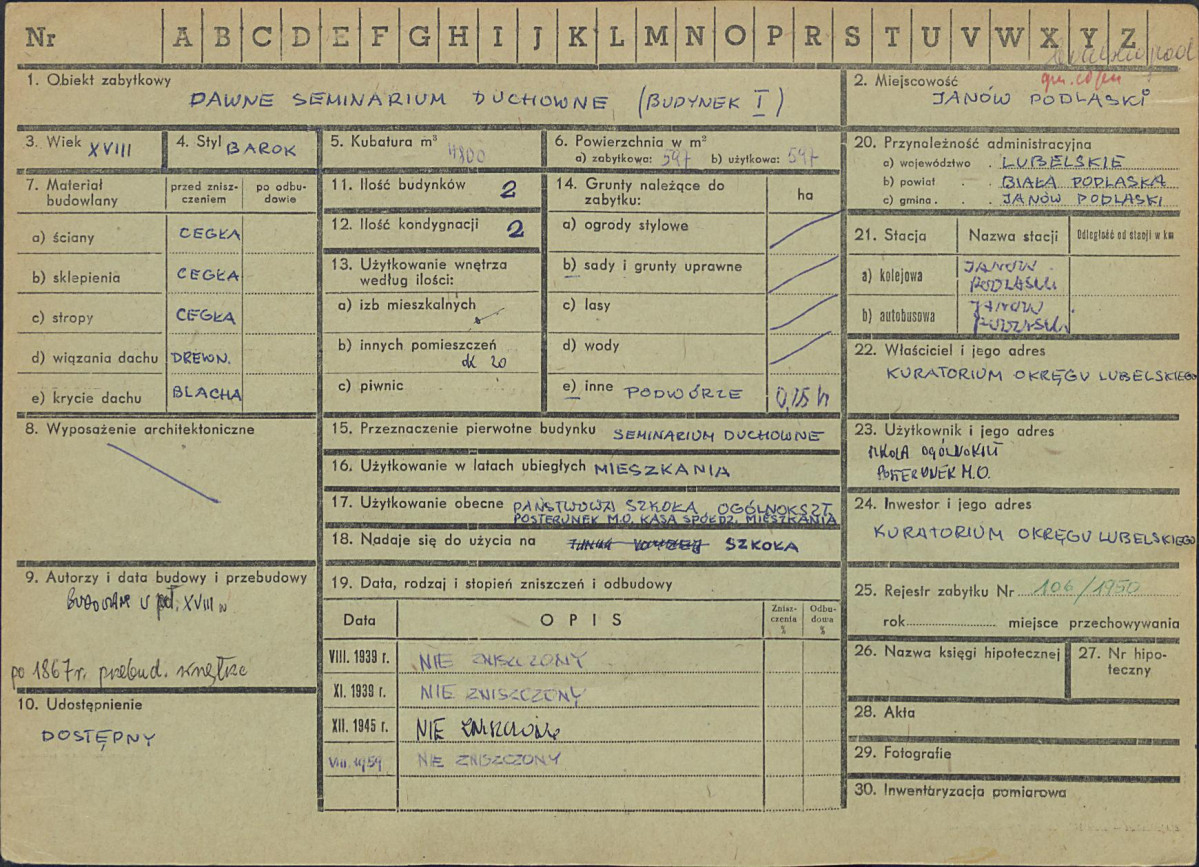 Nr A B C D E F G H I J K L M N O P R S T U V W X Y Z
1. Obiekt zabytkowy
DAWNE SEMINARIUM DUCHOWNE (BUDYNEK I)
2. Miejscowość
JANÓW PODLASKI
3. Wiek XVIII
4. Styl BAROK
5. Kubatura m³ 4800
6. Powierzchnia w m²
a) zabytkowa: 597 b) użytkowa: 597
7. Materiał budowlany
przed zniszczeniem
po odbudowie
a) ściany CEGŁA
b) sklepienia CEGŁA
c) stropy CEGŁA
d) wiązania dachu DREWN.
e) krycie dachu BLACHA
8. Wyposażenie architektoniczne
9. Autorzy i data budowy i przebudowy
poł. XVIII w
po 1867 r. przebud. wnętrze
10. Udostępnienie
DOSTĘPNY
11. Ilość budynków 2
12. Ilość kondygnacji 2
13. Użytkowanie wnętrza
według ilości:
a) izb mieszkalnych
b) innych pomieszczeń
ok 20
c) piwnic
14. Grunty należące do
zabytku:
ha
a) ogrody stylowe
b) sady i grunty uprawne
c) lasy
d) wody
e) inne PODWÓRZE 0,15 h
15. Przeznaczenie pierwotne budynku SEMINARIUM DUCHOWNE
16. Użytkowanie w latach ubiegłych MIESZKANIA
17. Użytkowanie obecne PAŃSTWOWA SZKOŁA OGÓLNOKSZT.
POSTERUNEK M.O. KASA SPÓŁDZ. MIESZKANIA
18. Nadaje się do użycia na SZKOŁA
19. Data, rodzaj i stopień zniszczeń i odbudowy
Data
OPIS
Zniszczenia %
Odbudowa %
VIII. 1939 r. NIE ZNISZCZONY
XI. 1939 r. NIE ZNISZCZONY
XII. 1945 r. NIE ZNISZCZONE
VIII. 1959 NIE ZNISZCZONY
20. Przynależność administracyjna
a) województwo . LUBELSKIE
b) powiat . . BIAŁA PODLASKA
c) gmina . . JANÓW PODLASKI
21. Stacja
Nazwa stacji
Odległość od stacji w km
a) kolejowa JANÓW PODLASKI
b) autobusowa JANÓW PODLASKI
22. Właściciel i jego adres
KURATORIUM OKRĘGU LUBELSKIEGO
23. Użytkownik i jego adres
SZKOŁA OGÓLNOKSZT
POSTERUNEK M.O.
24. Inwestor i jego adres
KURATORIUM OKRĘGU LUBELSKIEGO
25. Rejestr zabytku Nr 106/1950
rok miejsce przechowywania
26. Nazwa księgi hipotecznej
27. Nr hipoteczny
28. Akta
29. Fotografie
30. Inwentaryzacja pomiarowa